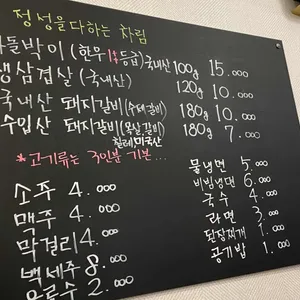 정성을 다하는 차림
차돌박이 (한우1++등급) 국내산 100g 15.000
생삼겹살 (국내산) 120g 10.000
국내산 돼지갈비 (수제갈비) 180g 10.000
수입산 돼지갈비 (왕실갈비) 180g 7.000
칠레 미국산
*고기류는 3인분 기본...
소주 4.000
맥주 4.000
막걸리 4.000
백세주 8.000
음료수 2.000
물냉면 5.000
비빔냉면 6.000
국수 4.000
라면 3.000
된장찌개 1.000
공기밥 1.000